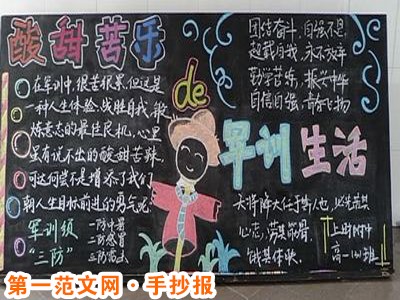 酸甜苦乐
de
军训生活
在军训中,很苦很累,但这是
一种人生体验,战胜自我,锻
炼意志的最佳良机,心里
虽有说不出的酸甜苦辣,
可这何尝不是增添了我们
朝人生目标前进的勇气呢
军训级
"三防"
一防中暑
二防感冒
三防
团结奋斗,自强不息
超越自我,永不放弃
勤学苦练,振兴中华
自信自强,青春飞扬
天将降大任于斯人也,必先苦其
心志,劳其筋骨,
饿其体肤
上时村中
高一
第一范文网·手抄报